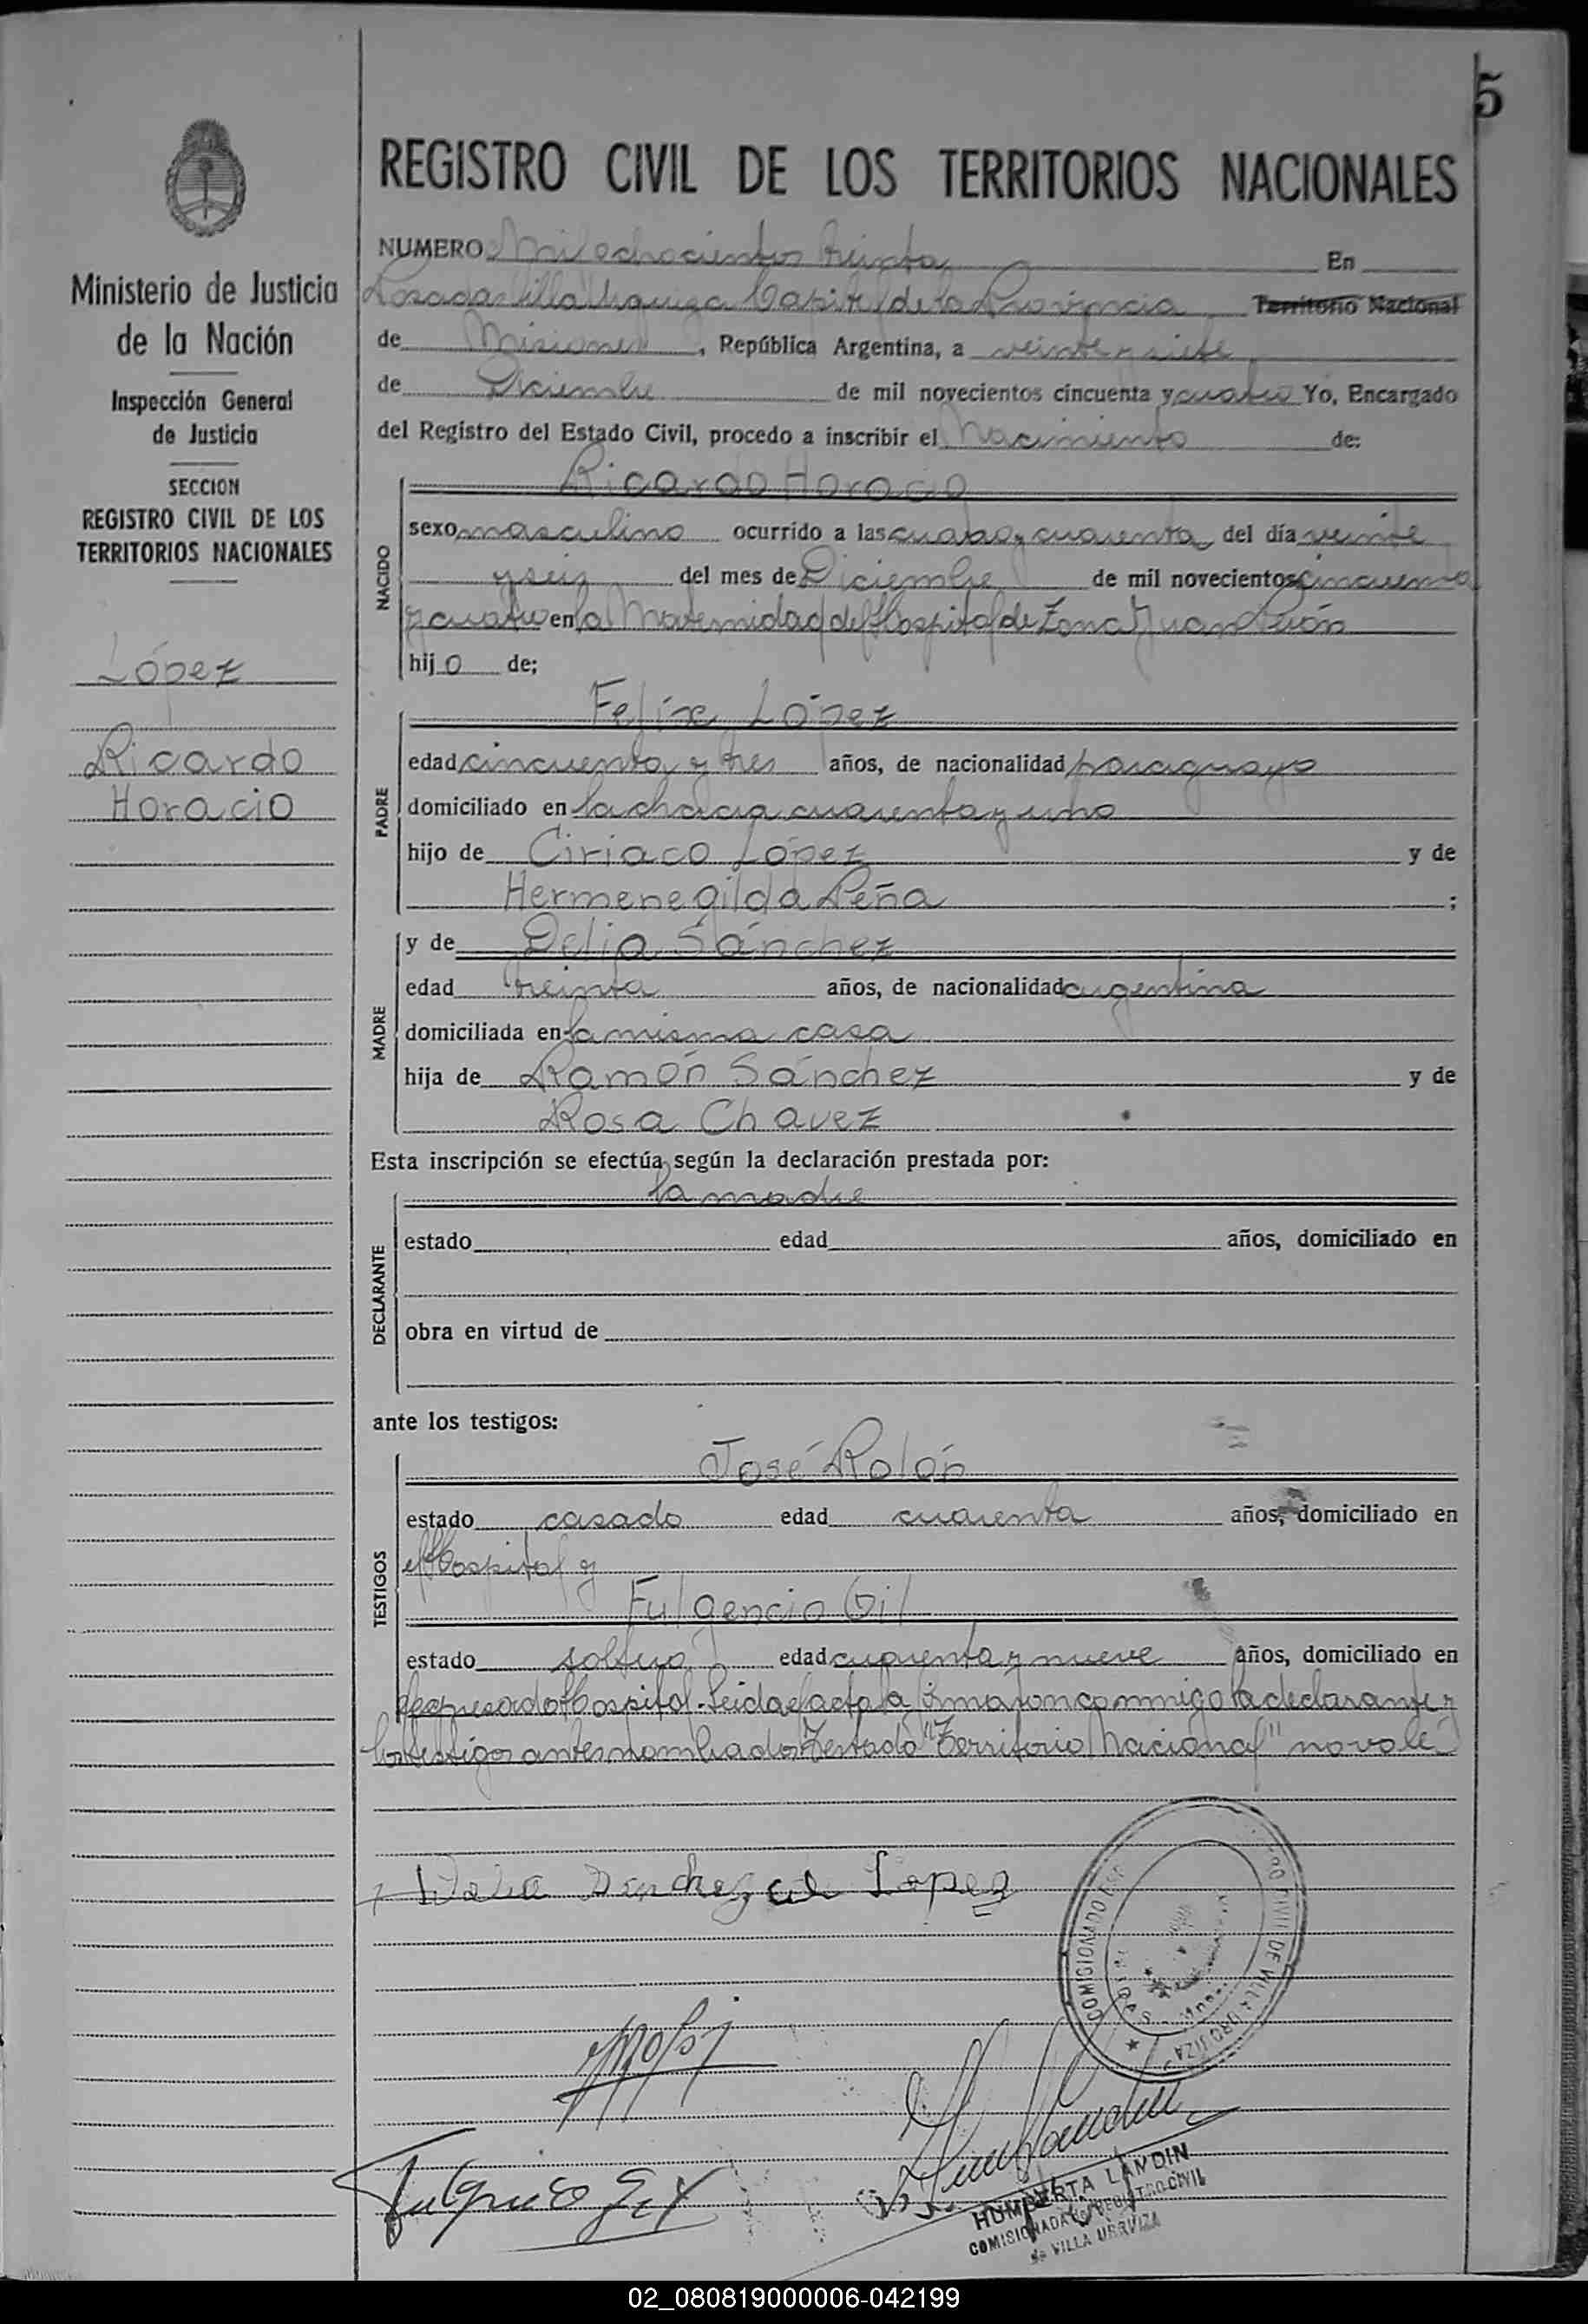 5
REGISTRO CIVIL DE LOS TERRITORIOS NACIONALES
Ministerio de Justicia
de la Nación
Inspección General
de Justicia
SECCION
REGISTRO CIVIL DE LOS
TERRITORIOS NACIONALES
López
Ricardo
Horacio
NUMERO Mil ochocientos treinta En
Posadas Villa Urquiza Capital de la Provincia Territorio Nacional
de Misiones, República Argentina, a veinte y siete
de Diciembre de mil novecientos cincuenta y cuatro Yo, Encargado
del Registro del Estado Civil, procedo a inscribir el Nacimiento de:
NACIDO
Ricardo Horacio
sexo masculino ocurrido a las cuatro y cuarenta del día veinte
y seis del mes de Diciembre de mil novecientos cincuenta
y cuatro en la Maternidad del Hospital de Zona Juan Perón
hijo de;
PADRE
Felix López
edad cincuenta y tres años, de nacionalidad paraguayo
domiciliado en la chacra cuarenta y uno
hijo de Ciriaco López y de
Hermenegilda Peña;
MADRE
y de Delia Sánchez
edad treinta años, de nacionalidad argentina
domiciliada en la misma casa
hija de Ramón Sánchez y de
Rosa Chavez
Esta inscripción se efectúa según la declaración prestada por:
DECLARANTE
la madre
estado edad años, domiciliado en
obra en virtud de
ante los testigos:
TESTIGOS
José Rolón
estado casado edad cuarenta años, domiciliado en
el Hospital y
Fulgencio Gil
estado soltero edad cuarenta y nueve años, domiciliado en
el expresado Hospital. Leida el acta la firmaron conmigo la declarante y
los testigos antes nombrados Testado "Territorio Nacional" no vale
Delia Sanchez de Lopez
COMICIONADO REGISTRO CIVIL DE VILLA URQUIZA
Fulgencio Gil
HUMBERTA LANDIN
COMISIONADA REGISTRO CIVIL
de VILLA URQUIZA
02_080819000006-042199